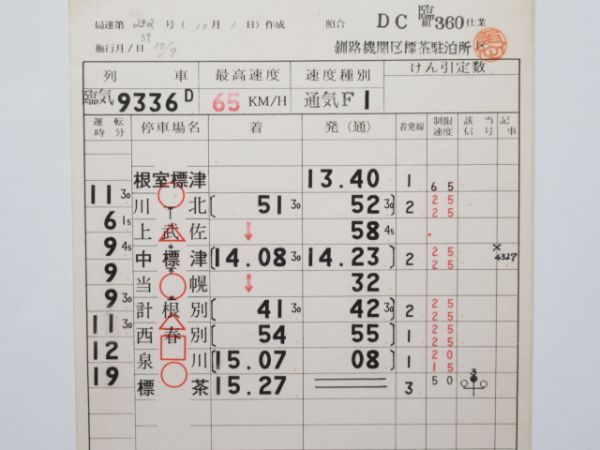 局達第292号(10月1日)作成 照合 DC臨360仕業
施行月1日 10/9 釧路機関区標茶駐泊所
列車 最高速度 速度種別 けん引定数
臨気9336D 65KM/H 通気F1
運転時分 停車場名 着 発(通) 着発線 制限速度 該当信号 記事
根室標津 13.40 1 65
11 30
川北 51 30 52 30 2 25 25
6 15
上武佐 ↓ 58 45
9 45
中標津 14.08 30 14.23 2 25 25 × 4327
9
当幌 ↓ 32
9 30
計根別 41 30 42 30 2 25 25
11 30
西春別 54 55 1 25 25
12
泉川 15.07 08 1 20 15
19
標茶 15.27 3 50 3